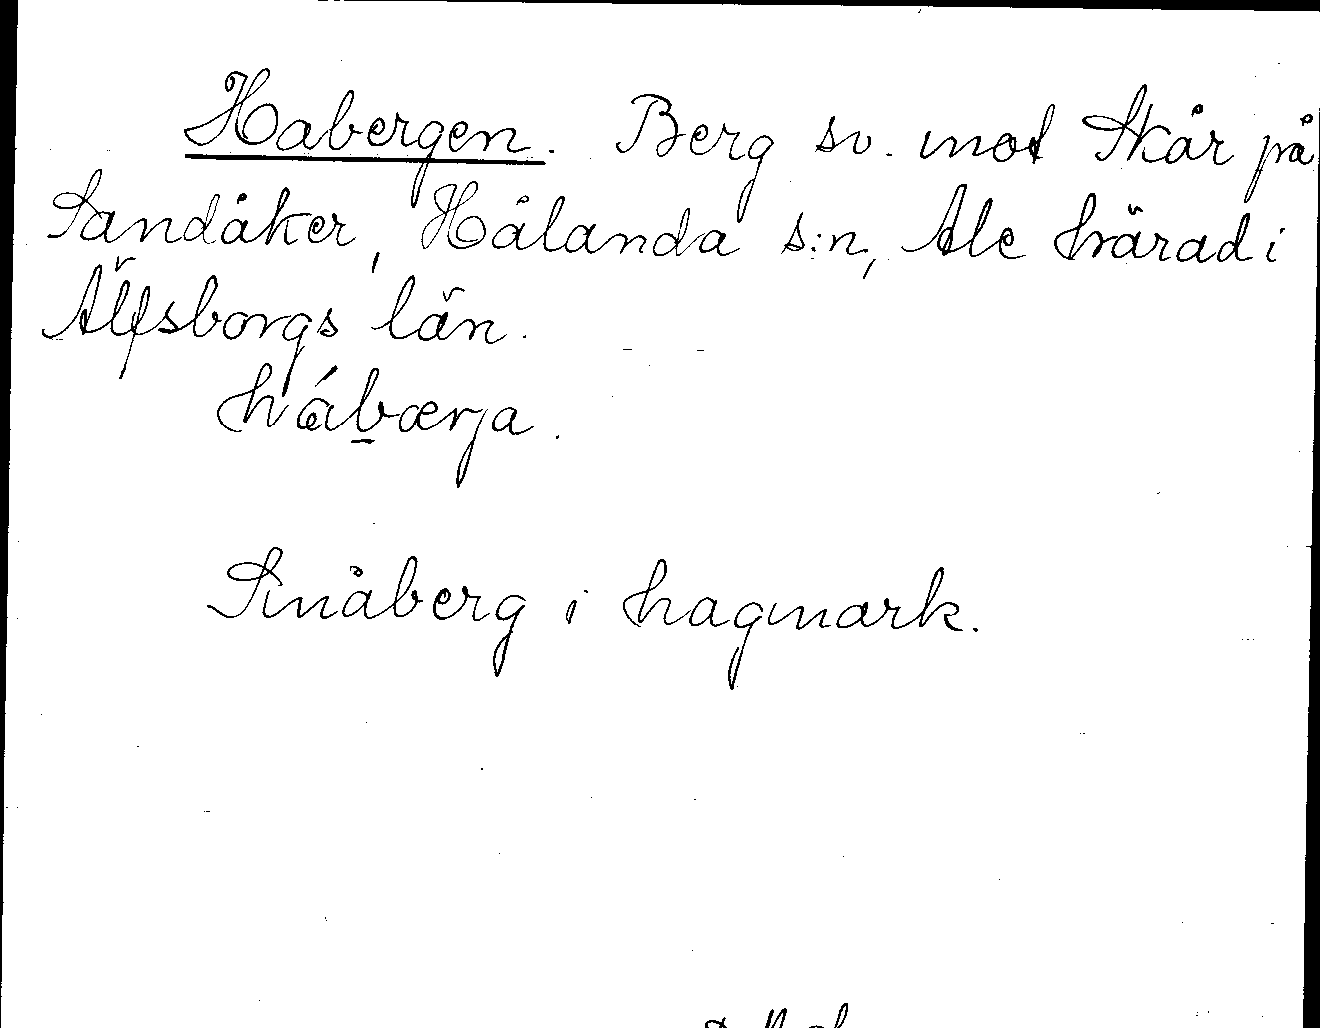 Habergen. Berg sv. mot Skår på
Sandåker, Hålanda s:n, Ale härad i
Älfsborgs län.
hábærja.
Småberg i hagmark.